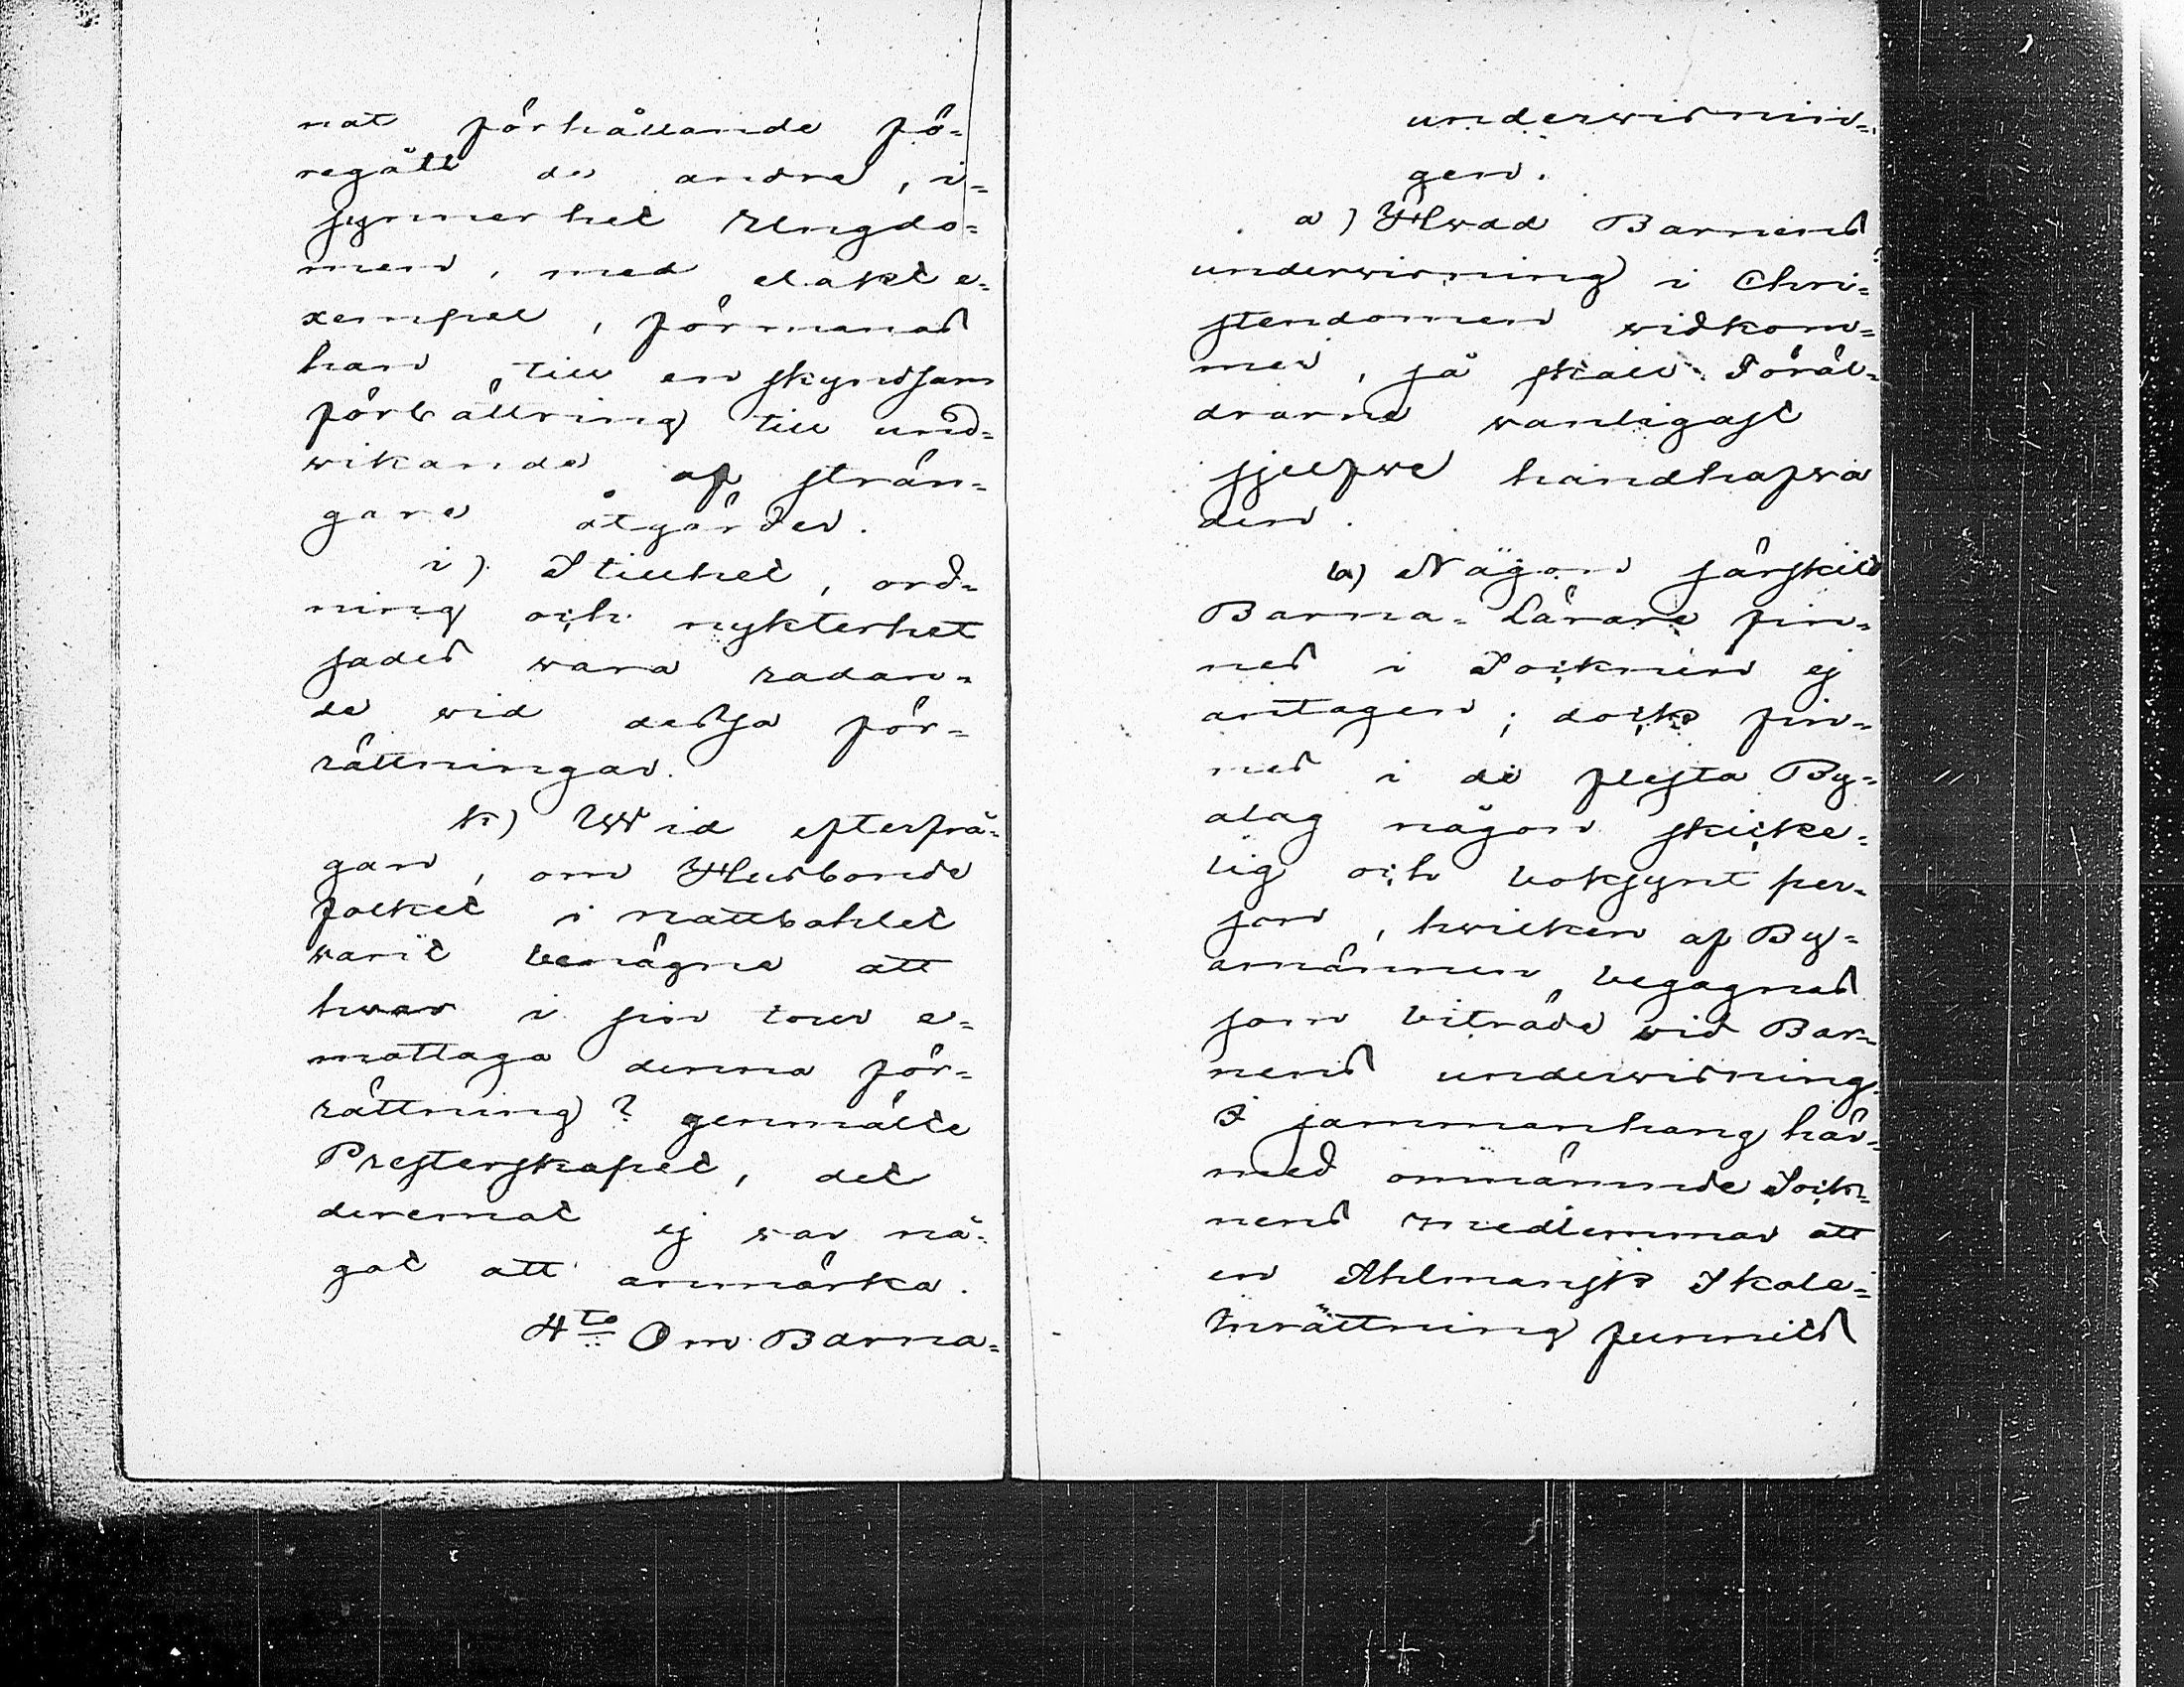 nat förhållande fö=
regått de andre, i=
synnerhet Ungdo=
men, med elakt e=
xempel, förmanas
han till en skyndsam
förbättring till und=
wikande af strän=
gare åtgärder.
i) Stillhet, ord=
ning och nykterhet
sades wara rådan=
de wid dessa för=
rättningar.
k) Wid efterfrå=
gan, om Husbonde
folket i Mattbohlet
warit benägne att
hwar i sin tour e=
mottaga denna för=
rättning? genmälte
Presterskapet, det
deremot ej var nå=
got att anmärka.
4to Om Barna=
underwisnin=
gen.
a) Hwad Barnens
underwisning i Chri=
stendomen widkom=
mer, så skall Föräl=
drarne vanligast
sjelfwe handhafwa
den.
b) Någon särskild
Barna=Lärare fin=
nes i Socknen ej
antagen; dock fin=
nes i de flesta By=
alag någon skicke=
lig och boksynt per=
son, hwilken af By=
amännen begagnas
som biträde wid Bar=
nens underwisning.
I sammanhang här=
med omnämnde Sock=
nens medlemmar att
en Ahlmansk Skole=
Inrättning funnits